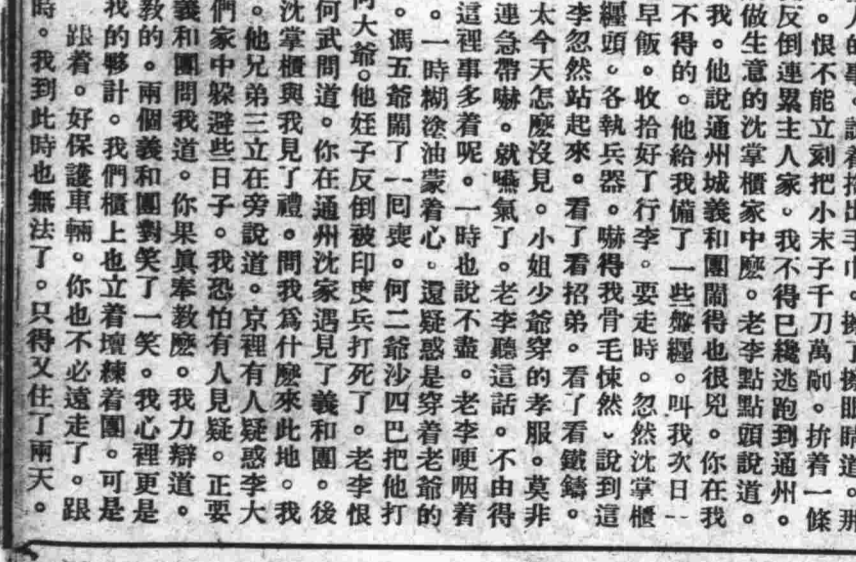 人的事。說着掏出手巾。擦了擦眼睛道。那
。恨不能立刻把小末子千刀萬剮。拚着一條
反倒連累主人家。我不得已纔逃跑到通州。
做生意的沈掌櫃家中麽。老李點點頭說道。
我。他說通州城義和團鬧得也很兇。你在我
不得的。他給我備了一些盤纏。叫我次日一
早飯。收拾好了行李。要走時。忽然沈掌櫃
纏頭。各執兵器。嚇得我骨毛悚然。說到這
李忽然站起來。看了看招弟。看了看鐵鑄。
太今天怎麽沒見。小姐少爺穿的孝服。莫非
連急帶嚇。就嚥氣了。老李聽這話。不由得
這裡事多着呢。一時也說不盡。老李哽咽着
。一時糊塗油蒙着心。還疑惑是穿着老爺的
。馮五爺鬧了一囘喪。何二爺沙四巴把他打
何大爺。他姪子反倒被印度兵打死了。老李恨
何武問道。你在通州沈家遇見了義和團。後
沈掌櫃與我見了禮。問我爲什麽來此地。我
。他兄弟三立在旁說道。京裡有人疑惑李大
們家中躱避些日子。我恐怕有人見疑。正要
義和團問我道。你果眞奉教麽。我力辯道。
教的。兩個義和團對笑了一笑。我心裡更是
我的夥計。我們櫃上也立着壇練着團。可是
跟着。好保護車輛。你也不必遠走了。跟
時。我到此時也無法了。只得又住了兩天。